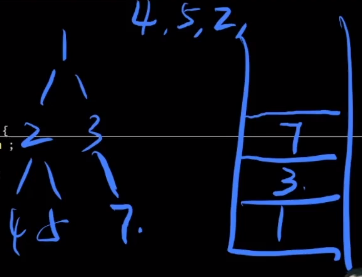 4,5,2,
1
2 3
4 5 7.
7
3.
1
{
;